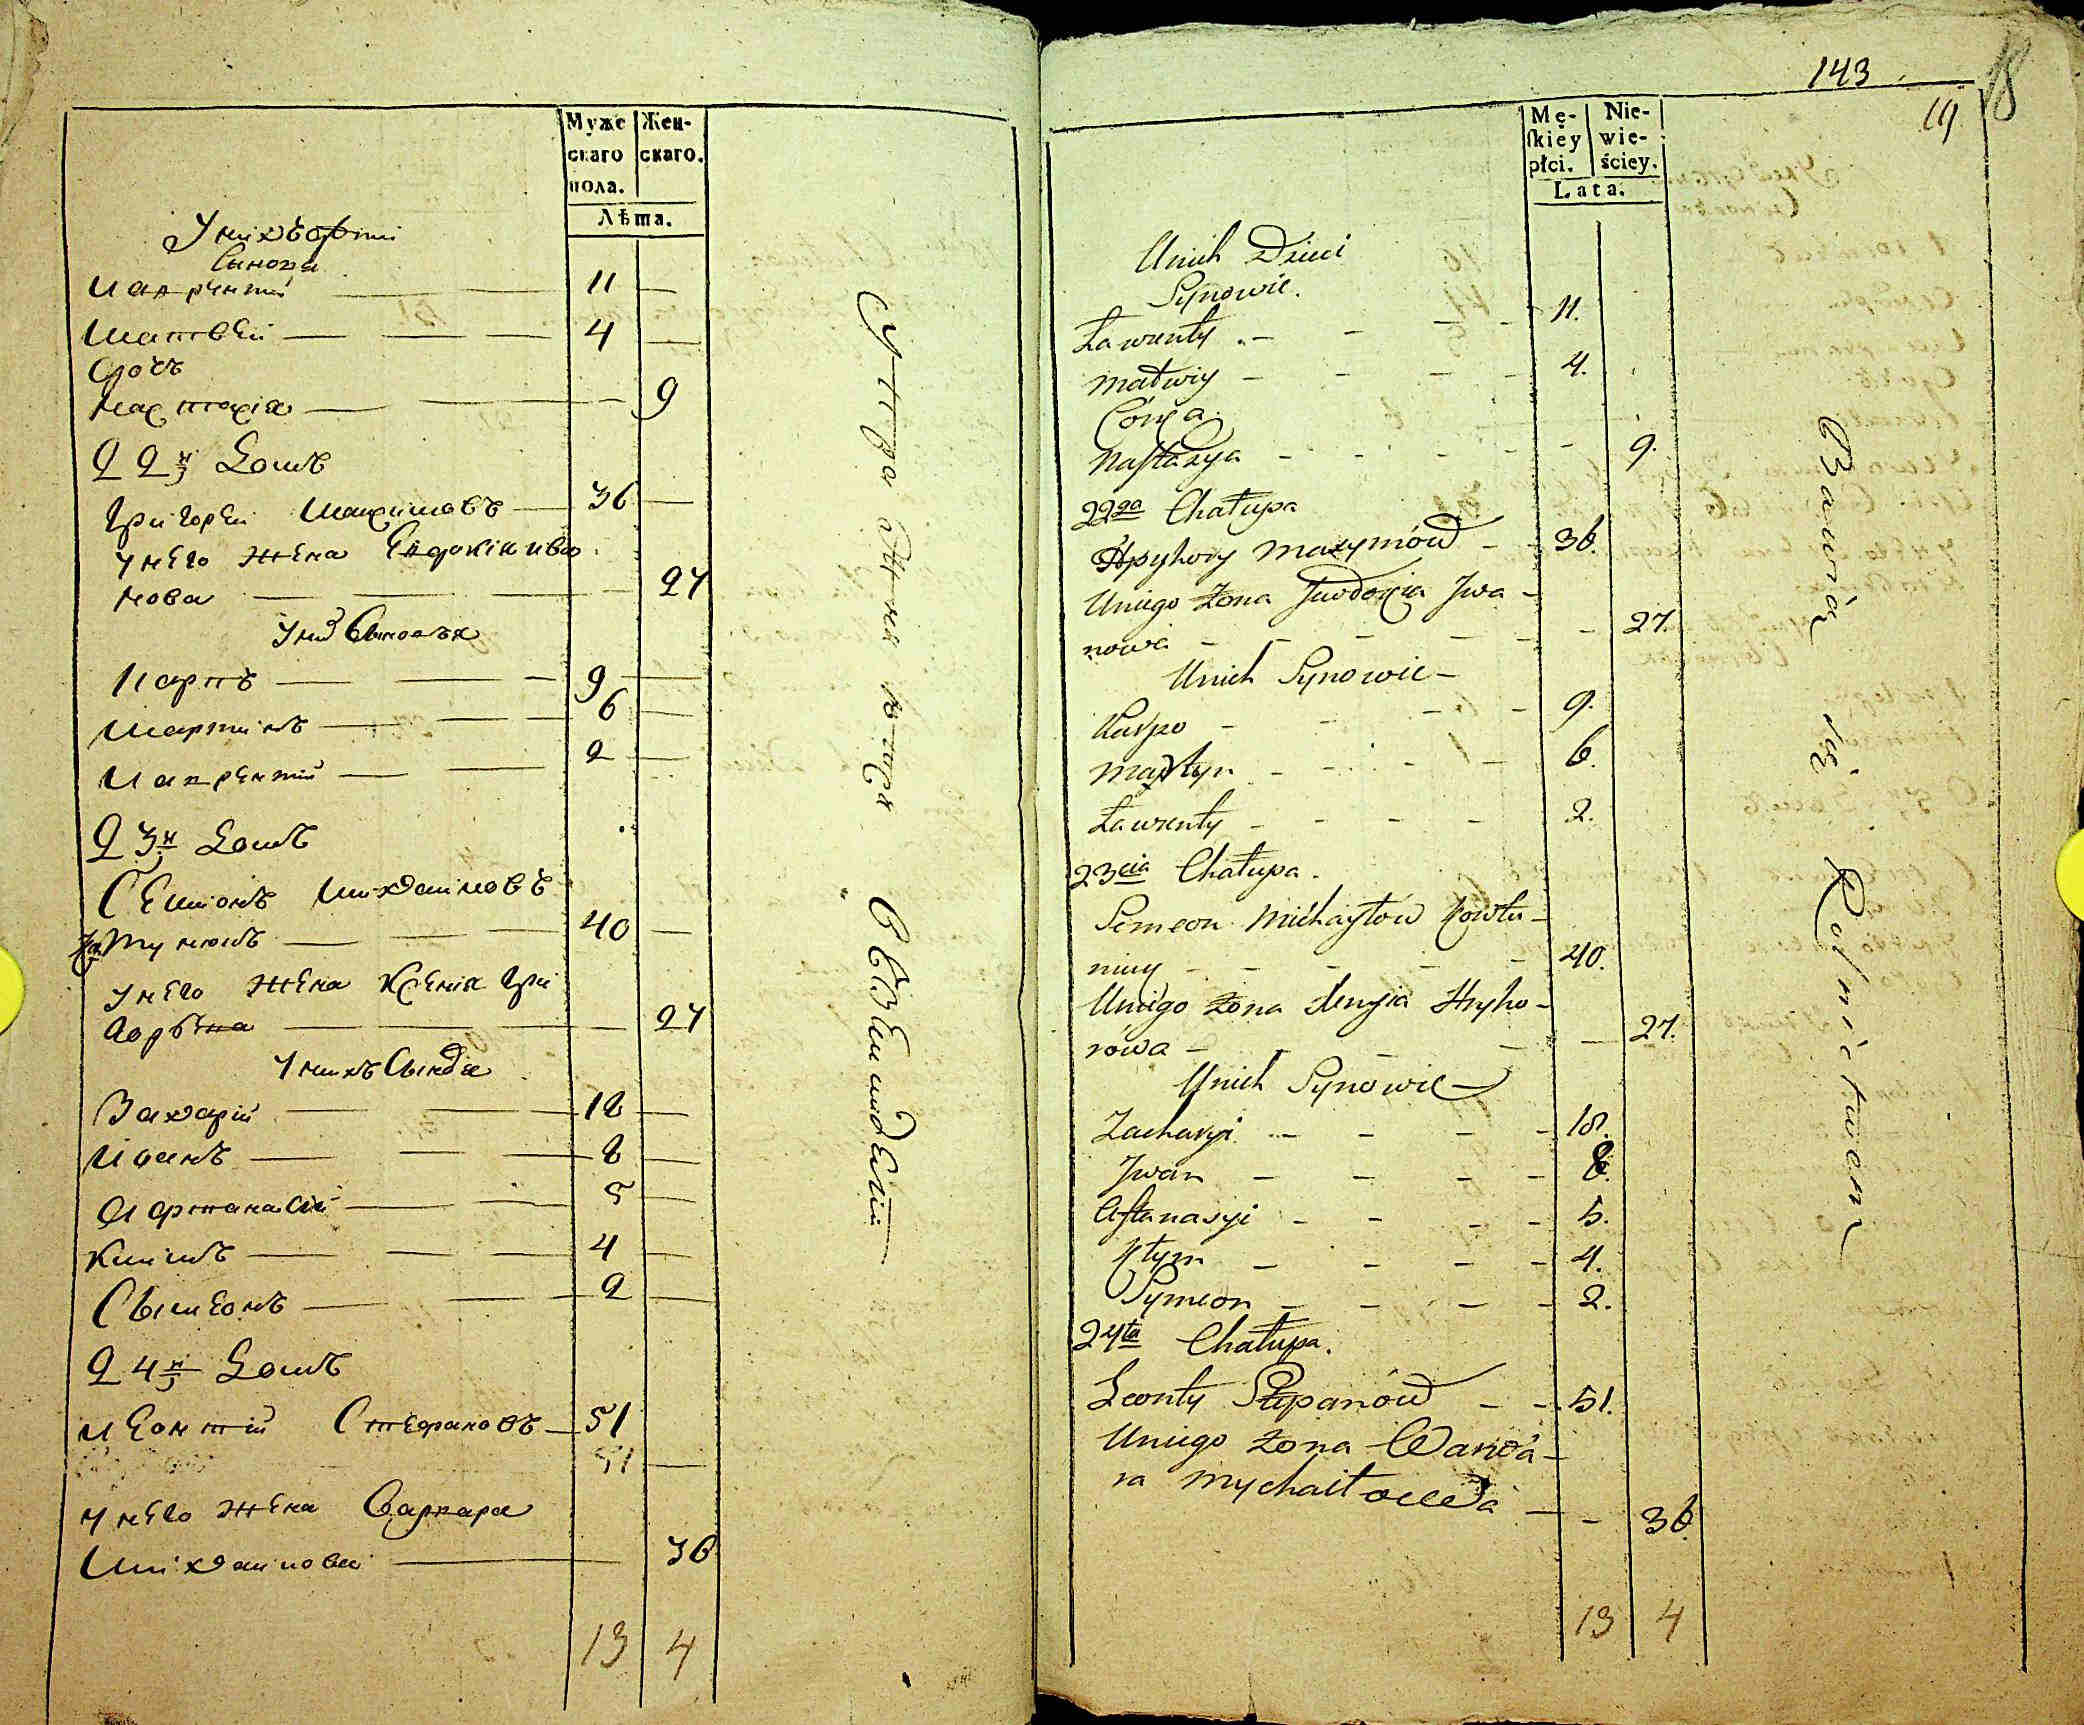 Муже Жен-
скаго скаго.
пола.
Лѣта.
У нихъ дѣти
Сыновя
Лаврентий 11
Матвей 4
Дочь
Настасія 9
22й Домъ
Григорей Максимовъ 36
У него жена Евдокія Ива
нова 27
У них Сыновья
Карпъ 9
Мартинъ 6
Лаврентий 2
23й Домъ
Семионъ Михайловъ
40
У него жена Ксенія Гри
горьева 27
У нихъ Сыновья
Захарій 18
Иванъ 8
Афтанасий 5
Климъ 4
Сымеонъ 2
24й Домъ
Леонтий Стефановъ 51
51
У него жена Варвара
Михайлова 36
13 4
143
19
18
Mę- Nie-
ſkiey wie-
płci. ściey.
Lata.
Unich Dzieci
Synowie.
Ławrenty 11.
Matwiy 4.
Córka
Nastazya 9.
22ga Chałupa
Hryhory Maxymów 36.
Uniego Żona Juwdoxia Jwa-
nowa 27.
Unich Synowie
Karpo 9.
Martyn 6.
Ławrenty 2.
23cia Chałupa.
Semeon Michayłów Kowtu-
niuy 40.
Uniego Żona Xenyia Hryho-
rówa 27.
Unich Synowie
Zacharyi 18.
Jwan 8.
Aftanasyi 5.
Kłym 4.
Symeon 2.
24ta Chałupa.
Leonty Stepanów 51.
Uniego Żona Warwa-
ra Mychaiłowa 36
13 4
Bawią się Rolnictwem